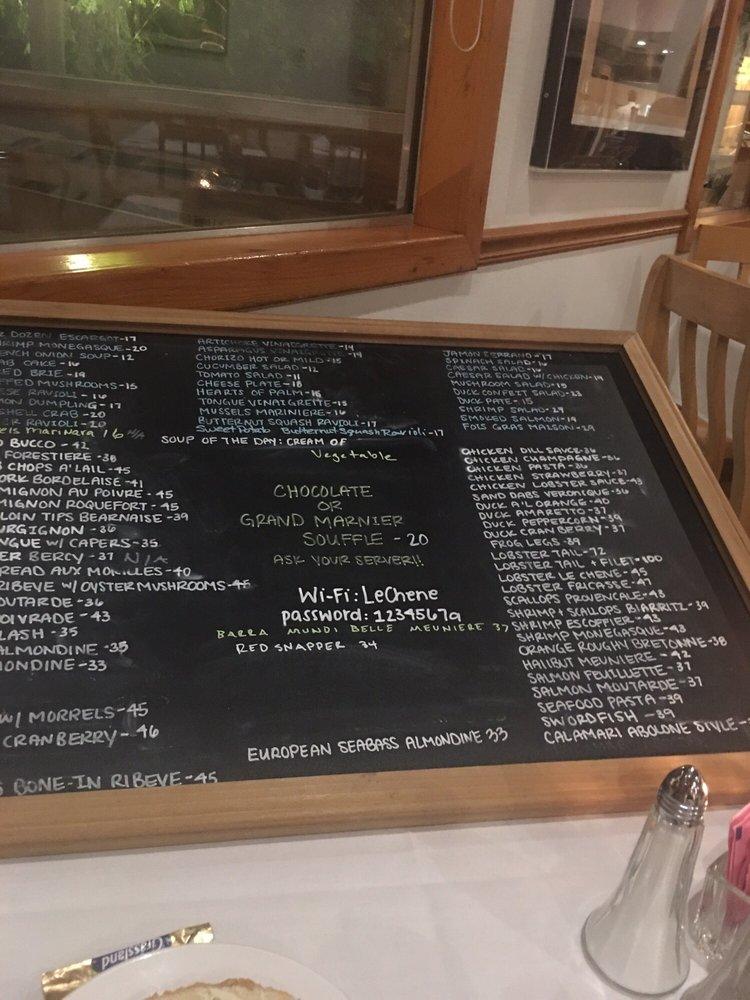 DOZEN ESCARGOT-17
SHRIMP MONEGASQUE-20
FRENCH ONION SOUP-12
CAKE-16
BRIE-19
STUFFED MUSHROOMS-15
RAVIOLI-16
DUMPLING-17
SHELL CRAB-20
RAVIOLI-20
Marinara 16 N/A
BUCCO-42
FORESTIERE-38
CHOPS A'LAIL-45
PORK BORDELAISE-41
MIGNON AU POIVRE-45
MIGNON ROQUEFORT-45
LOIN TIPS BEARNAISE-39
URGIGNON-36
NGUE W/ CAPERS-35
ER BERCY-37 N/A
READ AUX MORILLES-40
RIBEYE W/ OYSTER MUSHROOMS-45
OUTARDE-36
OIVRADE-43
LASH-35
ALMONDINE-35
MONDINE-33
W/ MORRELS-45
CRANBERRY-46
BONE-IN RIBEYE-45
ARTICHOKE VINAIGRETTE-14
ASPARAGUS VINAIGRETTE-14
CHORIZO HOT OR MILD-15
CUCUMBER SALAD-12
TOMATO SALAD-11
CHEESE PLATE-18
HEARTS OF PALM-15
TONGUE VINAIGRETTE-15
MUSSELS MARINIERE-16
BUTTERNUT SQUASH RAVIOLI-17
Sweet Potato Butternut Squash Ravioli-17
SOUP OF THE DAY: CREAM OF
Vegetable
CHOCOLATE
OR
GRAND MARNIER
SOUFFLE - 20
ASK YOUR SERVER!!
Wi-Fi: LeChene
password: 1234567a
BARRA MUNDI BELLE MEUNIERE 37
RED SNAPPER 34
EUROPEAN SEABASS ALMONDINE 33
JAMON SERRANO-17
SPINACH SALAD-16
CAESAR SALAD-16
CAESAR SALAD W/ CHICKEN-19
MUSHROOM SALAD-15
DUCK CONFIT SALAD-23
DUCK PATE-15
SHRIMP SALAD-29
SMOKED SALMON-19
FOIS GRAS MAISON-29
CHICKEN DILL SAUCE-36
CHICKEN CHAMPAGNE-36
CHICKEN PASTA-36
CHICKEN STRAWBERRY-37
CHICKEN LOBSTER SAUCE-43
SAND DABS VERONIQUE-36
DUCK A'L ORANGE-40
DUCK AMARETTO-37
DUCK PEPPERCORN-38
DUCK CRANBERRY-37
FROG LEGS-39
LOBSTER TAIL-72
LOBSTER TAIL + FILET-100
LOBSTER LE CHENE-45
LOBSTER FRICASSE-47
SCALLOPS PROVENCALE-43
SHRIMP + SCALLOPS BIARRITZ-39
SHRIMP ESCOFFIER-43
SHRIMP MONEGASQUE-43
ORANGE ROUGHY BRETONNE-38
HALIBUT MEUNIERE-42
SALMON FEUILLETTE-37
SALMON MOUTARDE-37
SEAFOOD PASTA-39
SWORDFISH-39
CALAMARI ABOLONE STYLE-
Grassland